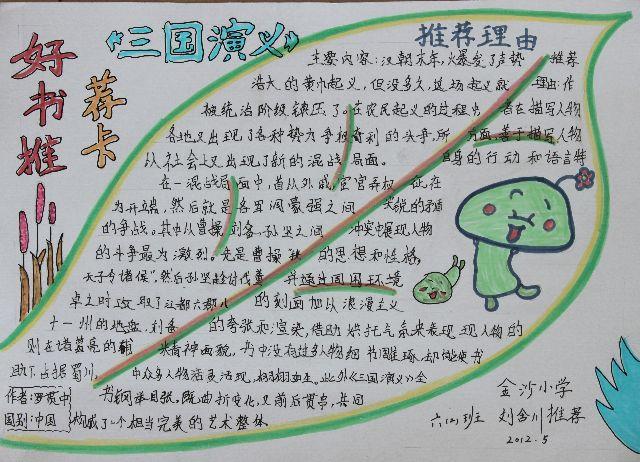 好书推荐卡
《三国演义》
推荐理由
主要内容:汉朝末年,爆发了声势 推荐
浩大的黄巾起义,但没多久,这场起义就 理由:作
被统治阶级镇压了。在农民起义的过程中 者在描写人物
各地又出现了各种势力争权夺利的斗争,所 方面,善于描写人物
从社会上又出现了新的混战局面。 自身的行动和语言特
在一混战局面中,首从外戚,宦官弄权 征,在
为开端,然后就是各军阀豪强之间 尖锐的矛盾
的争战。其中从曹操刘备、孙坚之间 冲突中展现人物
的斗争最为激烈。先是曹操“挟 的思想和性格,
天子令诸侯”,然后孙坚趁讨伐董 并通过周围环境
卓之时攻取了江都六郡八 的刻画加从浪漫主义
十一州的地盘,刘备 的夸张和渲染,借助烘托气氛来表现现人物的
则在诸葛亮的辅 精神面貌,书中没有过多人物细节雕琢,却能使书
助下占据蜀川, 中众多人物活灵活现,栩栩如生。此外《三国演义》全
作者:罗贯中 书纲举目张,既曲折变化,又前后贯串,共同
国别:中国 构成了一个相当完美的艺术整体
金沙小学
六(2)班 刘含川推荐
2012.5